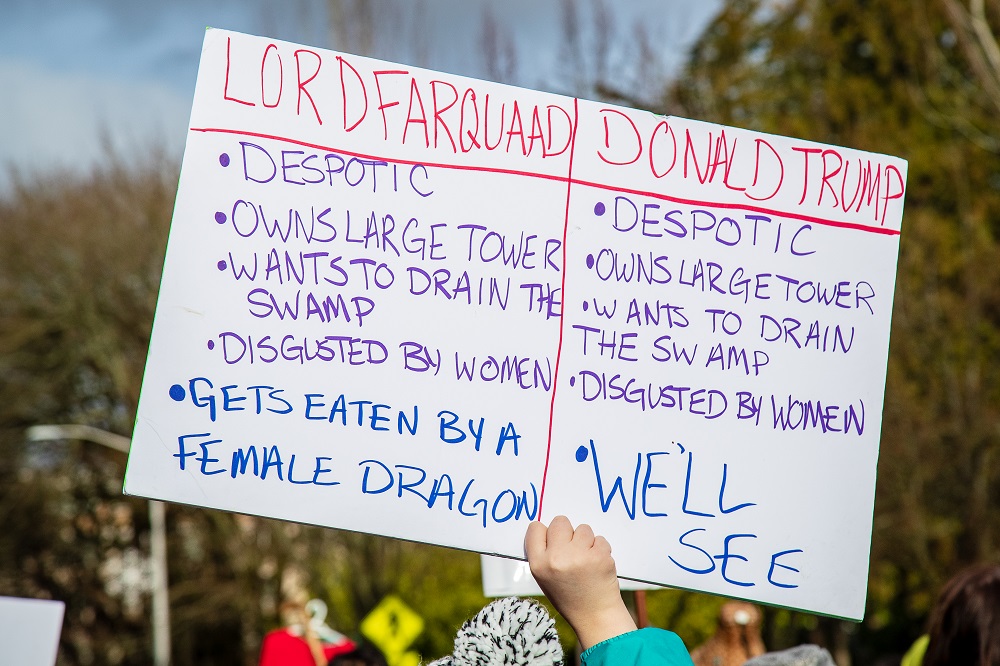 LORD FARQUAAD
• DESPOTIC
• OWNS LARGE TOWER
• WANTS TO DRAIN THE
SWAMP
• DISGUSTED BY WOMEN
• GETS EATEN BY A
FEMALE DRAGON
DONALD TRUMP
• DESPOTIC
• OWNS LARGE TOWER
• WANTS TO DRAIN
THE SWAMP
• DISGUSTED BY WOMEN
• WE'LL
SEE